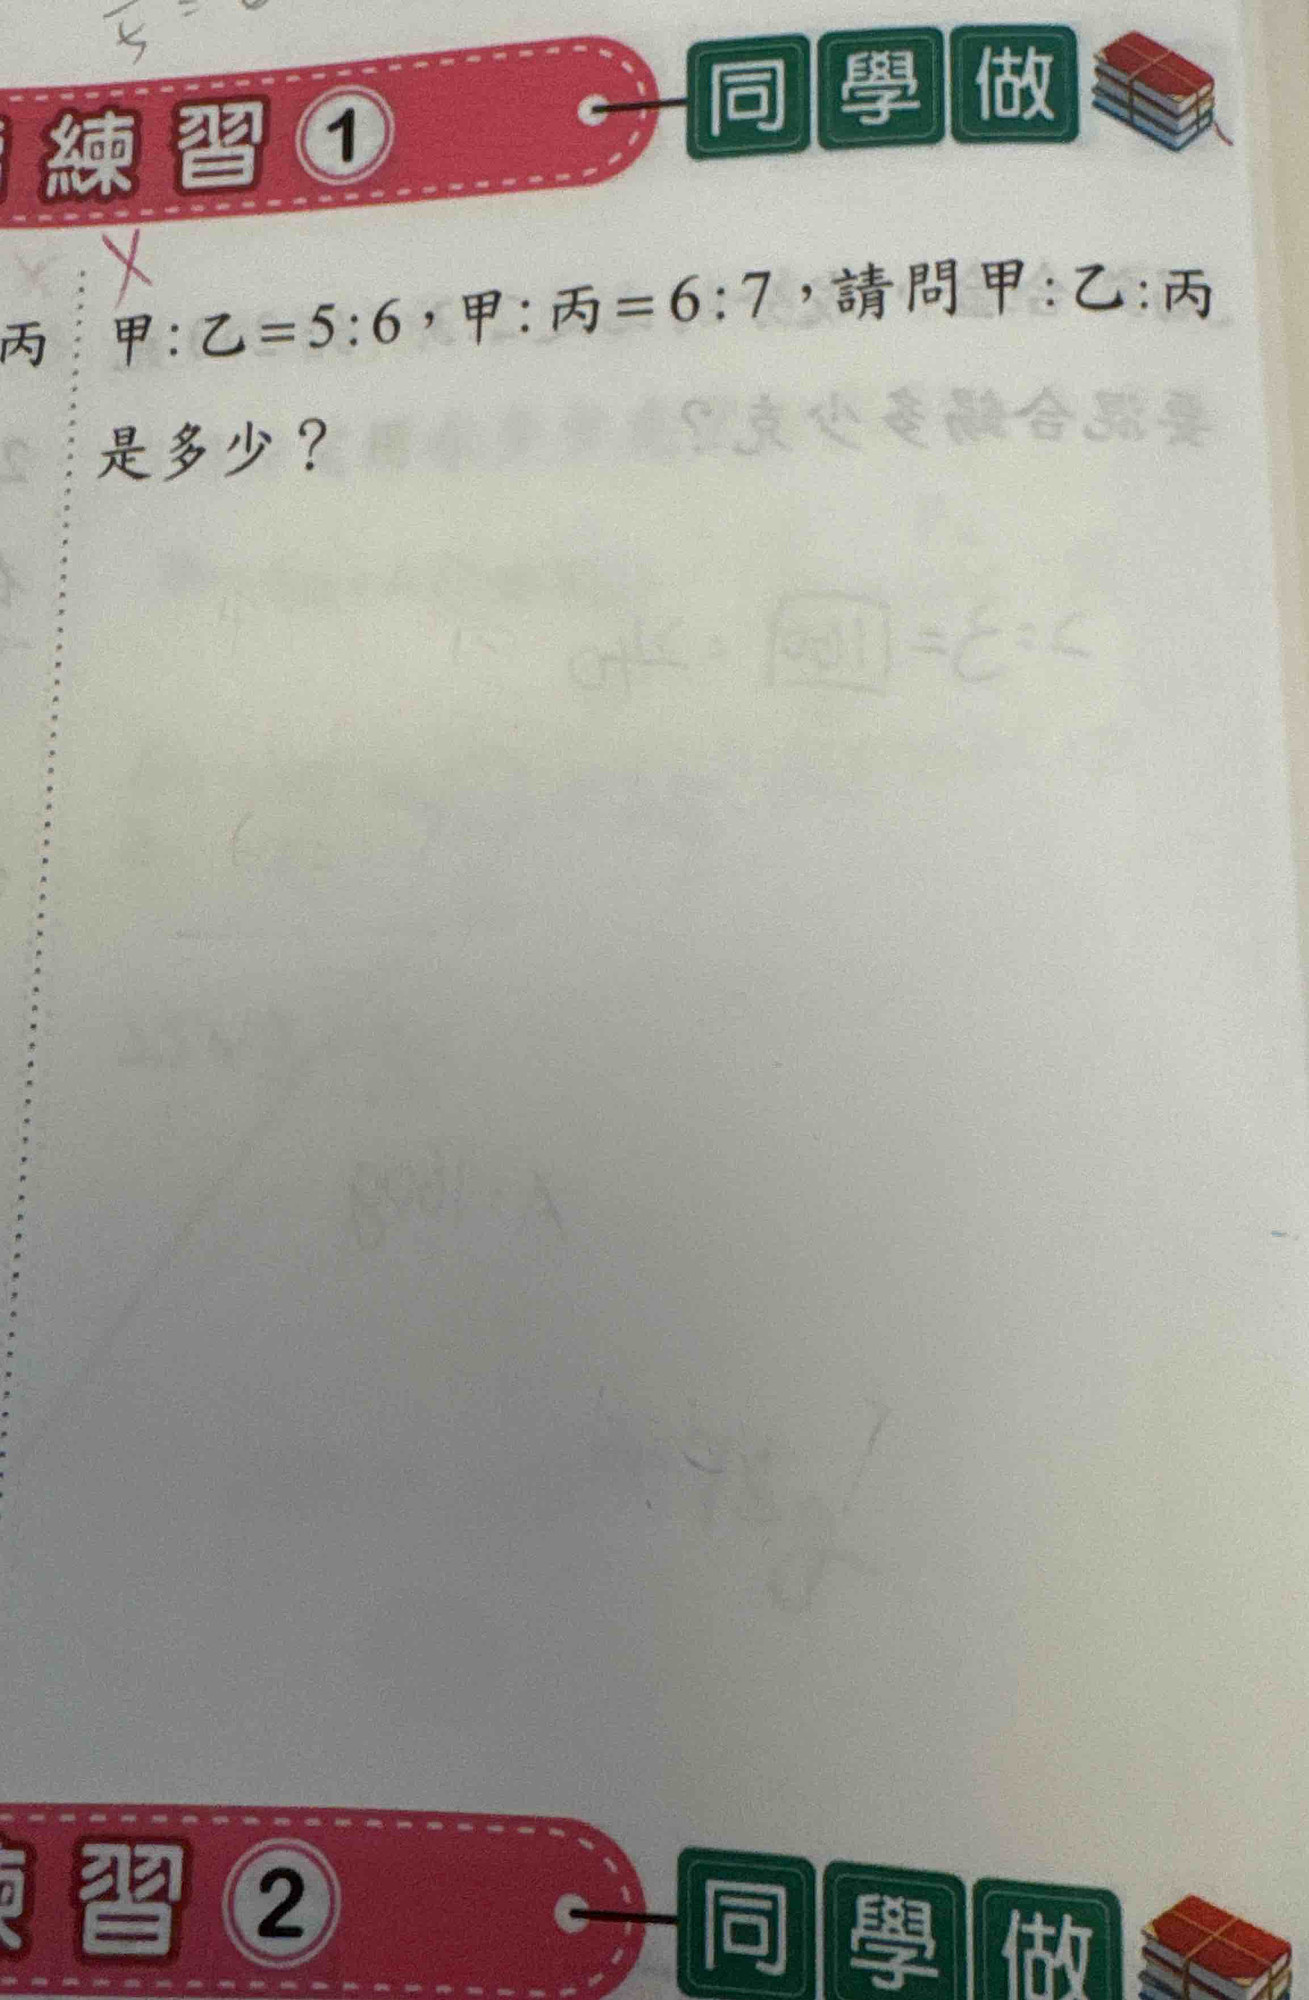 練習1 同學做
丙 甲:乙=5:6，甲:丙=6:7，請問甲:乙:丙
是多少？
習2 同學做